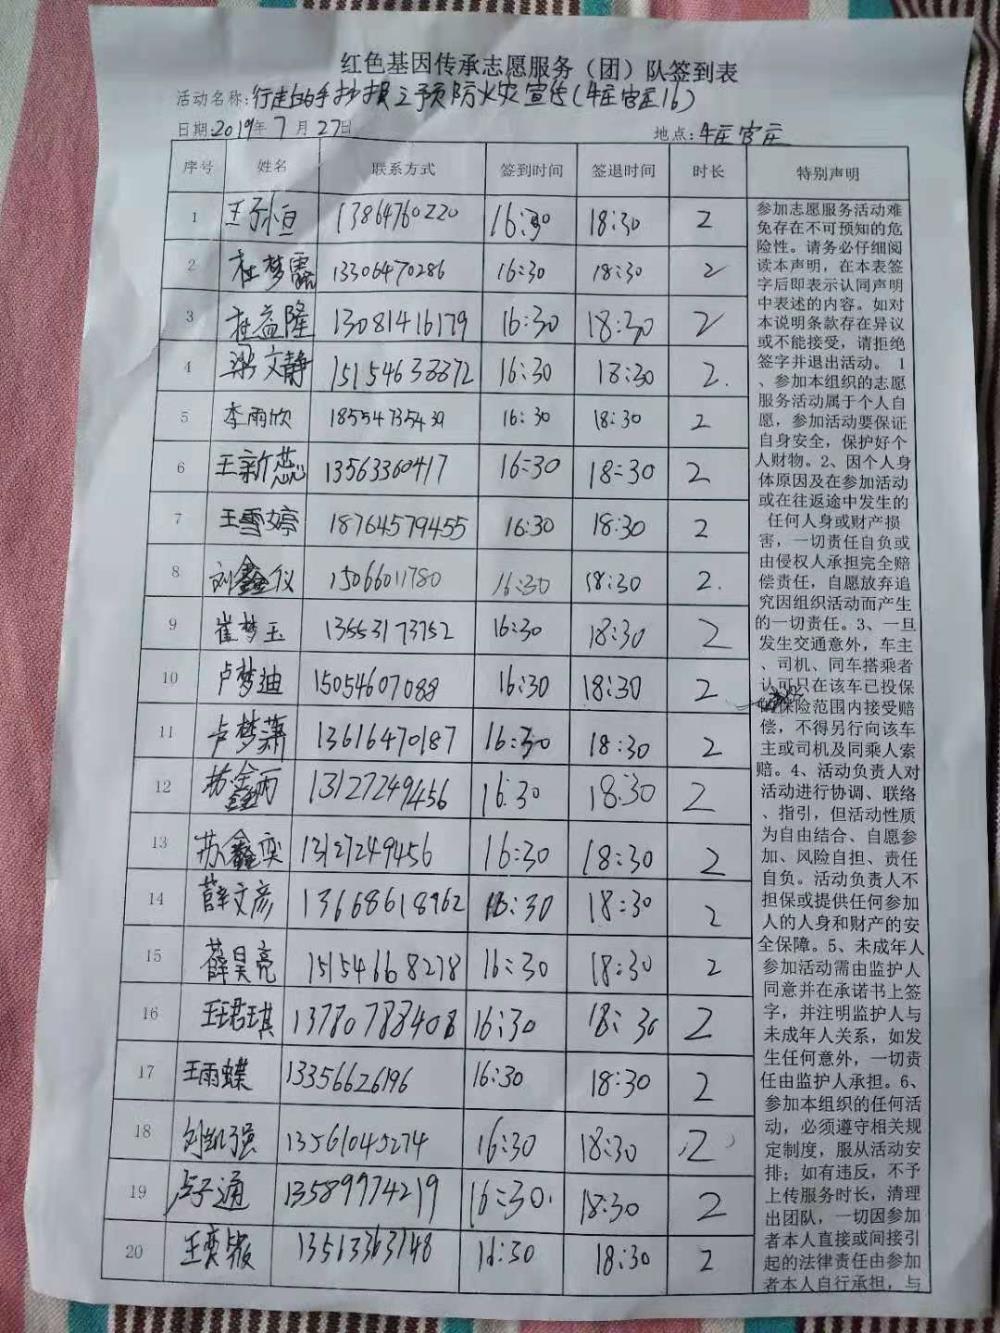 红色基因传承志愿服务（团）队签到表
活动名称:行走的手抄报之预防火灾宣传(牛庄官庄16)
日期:2019年7月27日 地点:牛庄官庄
序号 姓名 联系方式 签到时间 签退时间 时长 特别声明
1 王子恒 13864760220 16:30 18:30 2
2 杜梦露 13306470286 16:30 18:30 2
3 杜益隆 13081416179 16:30 18:30 2
4 梁文静 15154638872 16:30 18:30 2.
5 李雨欣 16:30 18:30 2
6 王新蕊 13563360417 16:30 18:30 2
7 王雪婷 18764579455 16:30 18:30 2
8 刘鑫仪 15066011780 16:30 18:30 2.
9 崔梦玉 13553173752 16:30 18:30 2
10 卢梦迪 15054607088 16:30 18:30 2
11 卢梦潇 13616470187 16:30 18:30 2
12 苏鑫雨 13127249456 16:30 18:30 2
13 苏鑫奕 13127249456 16:30 18:30 2
14 薛文彦 13668618962 16:30 18:30 2
15 薛昊亮 15154668278 16:30 18:30 2
16 王珺琪 13780788408 16:30 18:30 2
17 王雨蝶 13356626196 16:30 18:30 2
18 刘凯强 13561045274 16:30 18:30 2
19 卢子通 13589974219 16:30 18:30 2
20 王奕 13513363148 16:30 18:30 2
参加志愿服务活动难
免存在不可预知的危
险性。请务必仔细阅
读本声明，在本表签
字后即表示认同声明
中表述的内容。如对
本说明条款存在异议
或不能接受，请拒绝
签字并退出活动。 1
、参加本组织的志愿
服务活动属于个人自
愿，参加活动要保证
自身安全，保护好个
人财物。2、因个人身
体原因及在参加活动
或在往返途中发生的
任何人身或财产损
害，一切责任自负或
由侵权人承担完全赔
偿责任，自愿放弃追
究因组织活动而产生
的一切责任。3、一旦
发生交通意外，车主
、司机、同车搭乘者
认可只在该车已投保
的保险范围内接受赔
偿，不得另行向该车
主或司机及同乘人索
赔。4、活动负责人对
活动进行协调、联络
、指引，但活动性质
为自由结合、自愿参
加、风险自担、责任
自负。活动负责人不
担保或提供任何参加
人的人身和财产的安
全保障。5、未成年人
参加活动需由监护人
同意并在承诺书上签
字，并注明监护人与
未成年人关系，如发
生任何意外，一切责
任由监护人承担。6、
参加本组织的任何活
动，必须遵守相关规
定制度，服从活动安
排；如有违反，不予
上传服务时长，清理
出团队，一切因参加
者本人直接或间接引
起的法律责任由参加
者本人自行承担，与